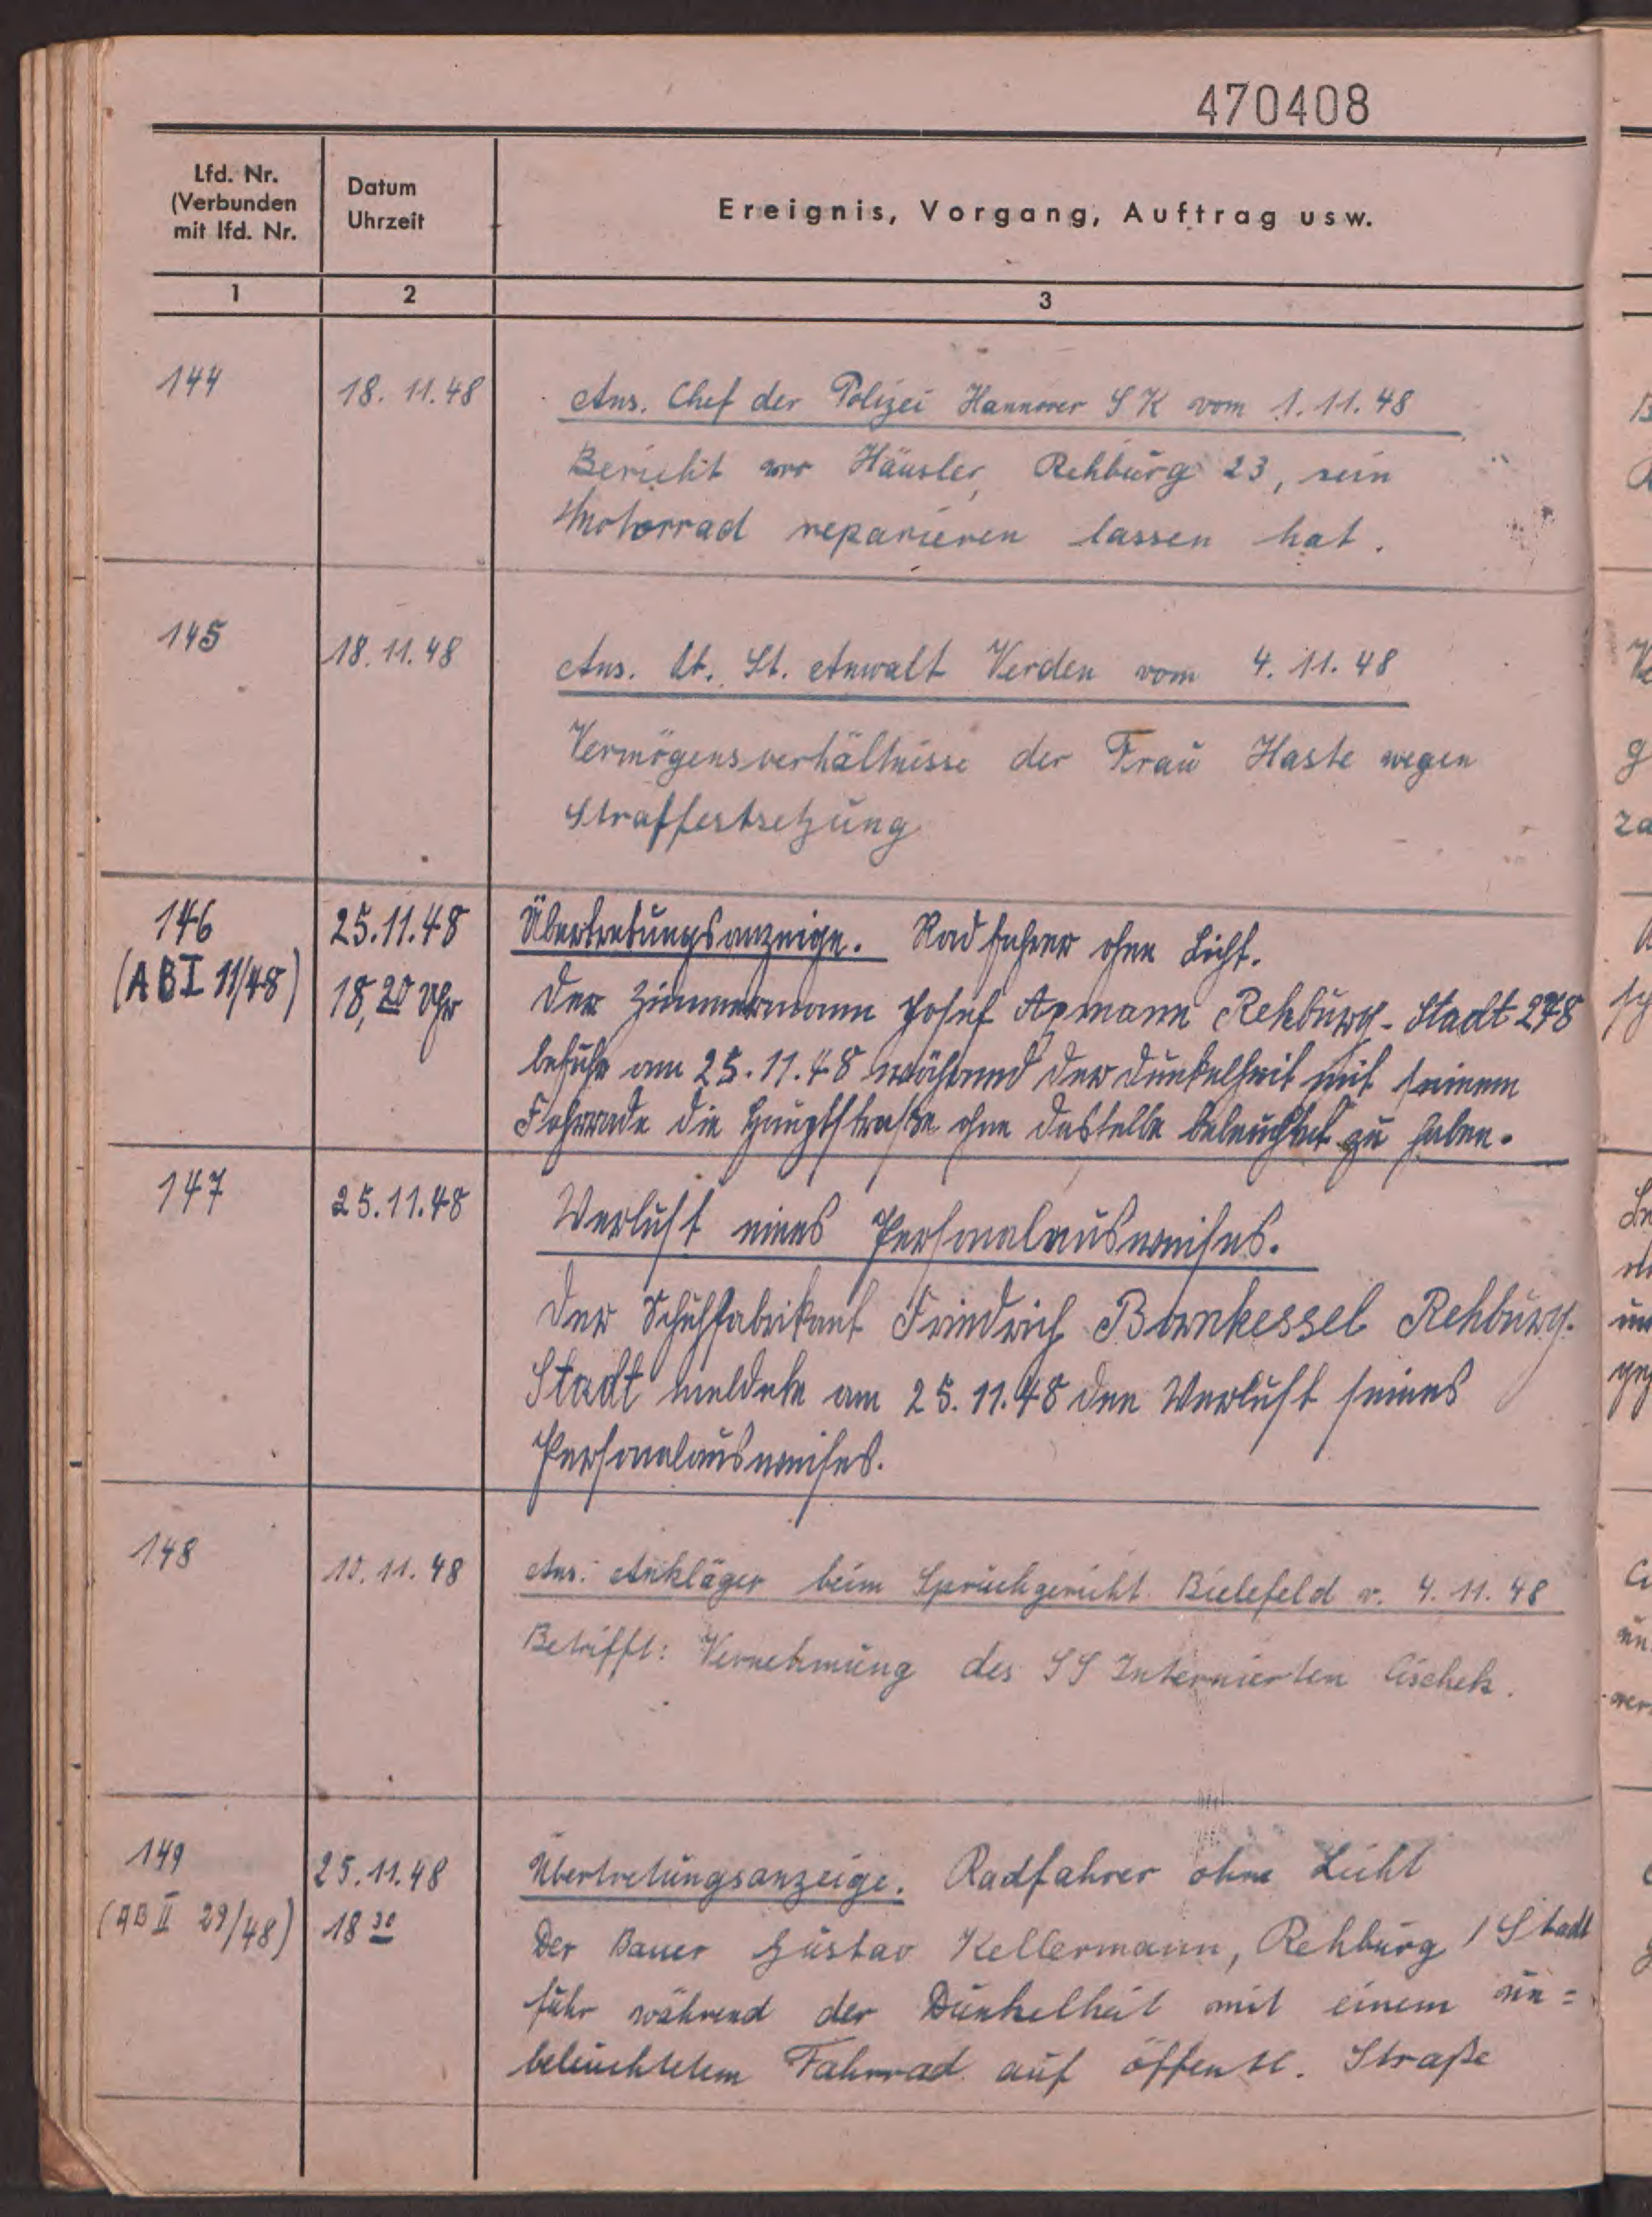 470408
Lfd. Nr.
(Verbunden
mit lfd. Nr.
Datum
Uhrzeit
Ereignis, Vorgang, Auftrag usw.
1
2
3
144
18. 11. 48
Ans. Chef der Polizei Hannover S K vom 1. 11. 48
Bericht wo Häusler, Rehburg 23, sein
Motorrad reparieren lassen hat.
145
18. 11. 48
Ans. St. Anwalt Verden vom 4. 11. 48
Vermögensverhältnisse der Frau Haste wegen
Straffestsetzung
146
(AB I 11/48)
25.11.48
18,20 Uhr
Übertretungsanzeige. Radfahrer ohne Licht.
Der Zimmermann Josef Apmann Rehburg-Stadt 278
befuhr am 25.11.48 während der Dunkelheit mit seinem
Fahrrade die Hauptstraße ohne dasselbe beleuchtet zu haben.
147
25.11.48
Verlust eines Personalausweises.
Der Schuhfabrikant Friedrich Bornkessel Rehburg-
Stadt meldete am 25.11.48 den Verlust seines
Personalausweises.
148
10. 11. 48
Ans. Ankläger beim Spruchgericht Bielefeld v. 4. 11. 48
Betrifft: Vernehmung des SS Internierten
149
(AB II 29/48)
25. 11. 48
18 30
Übertretungsanzeige. Radfahrer ohne Licht
Der Bauer Gustav Kellermann, Rehburg / Stadt
fuhr während der Dunkelheit mit einem un=
beleuchtetem Fahrrad auf öffentl. Straße